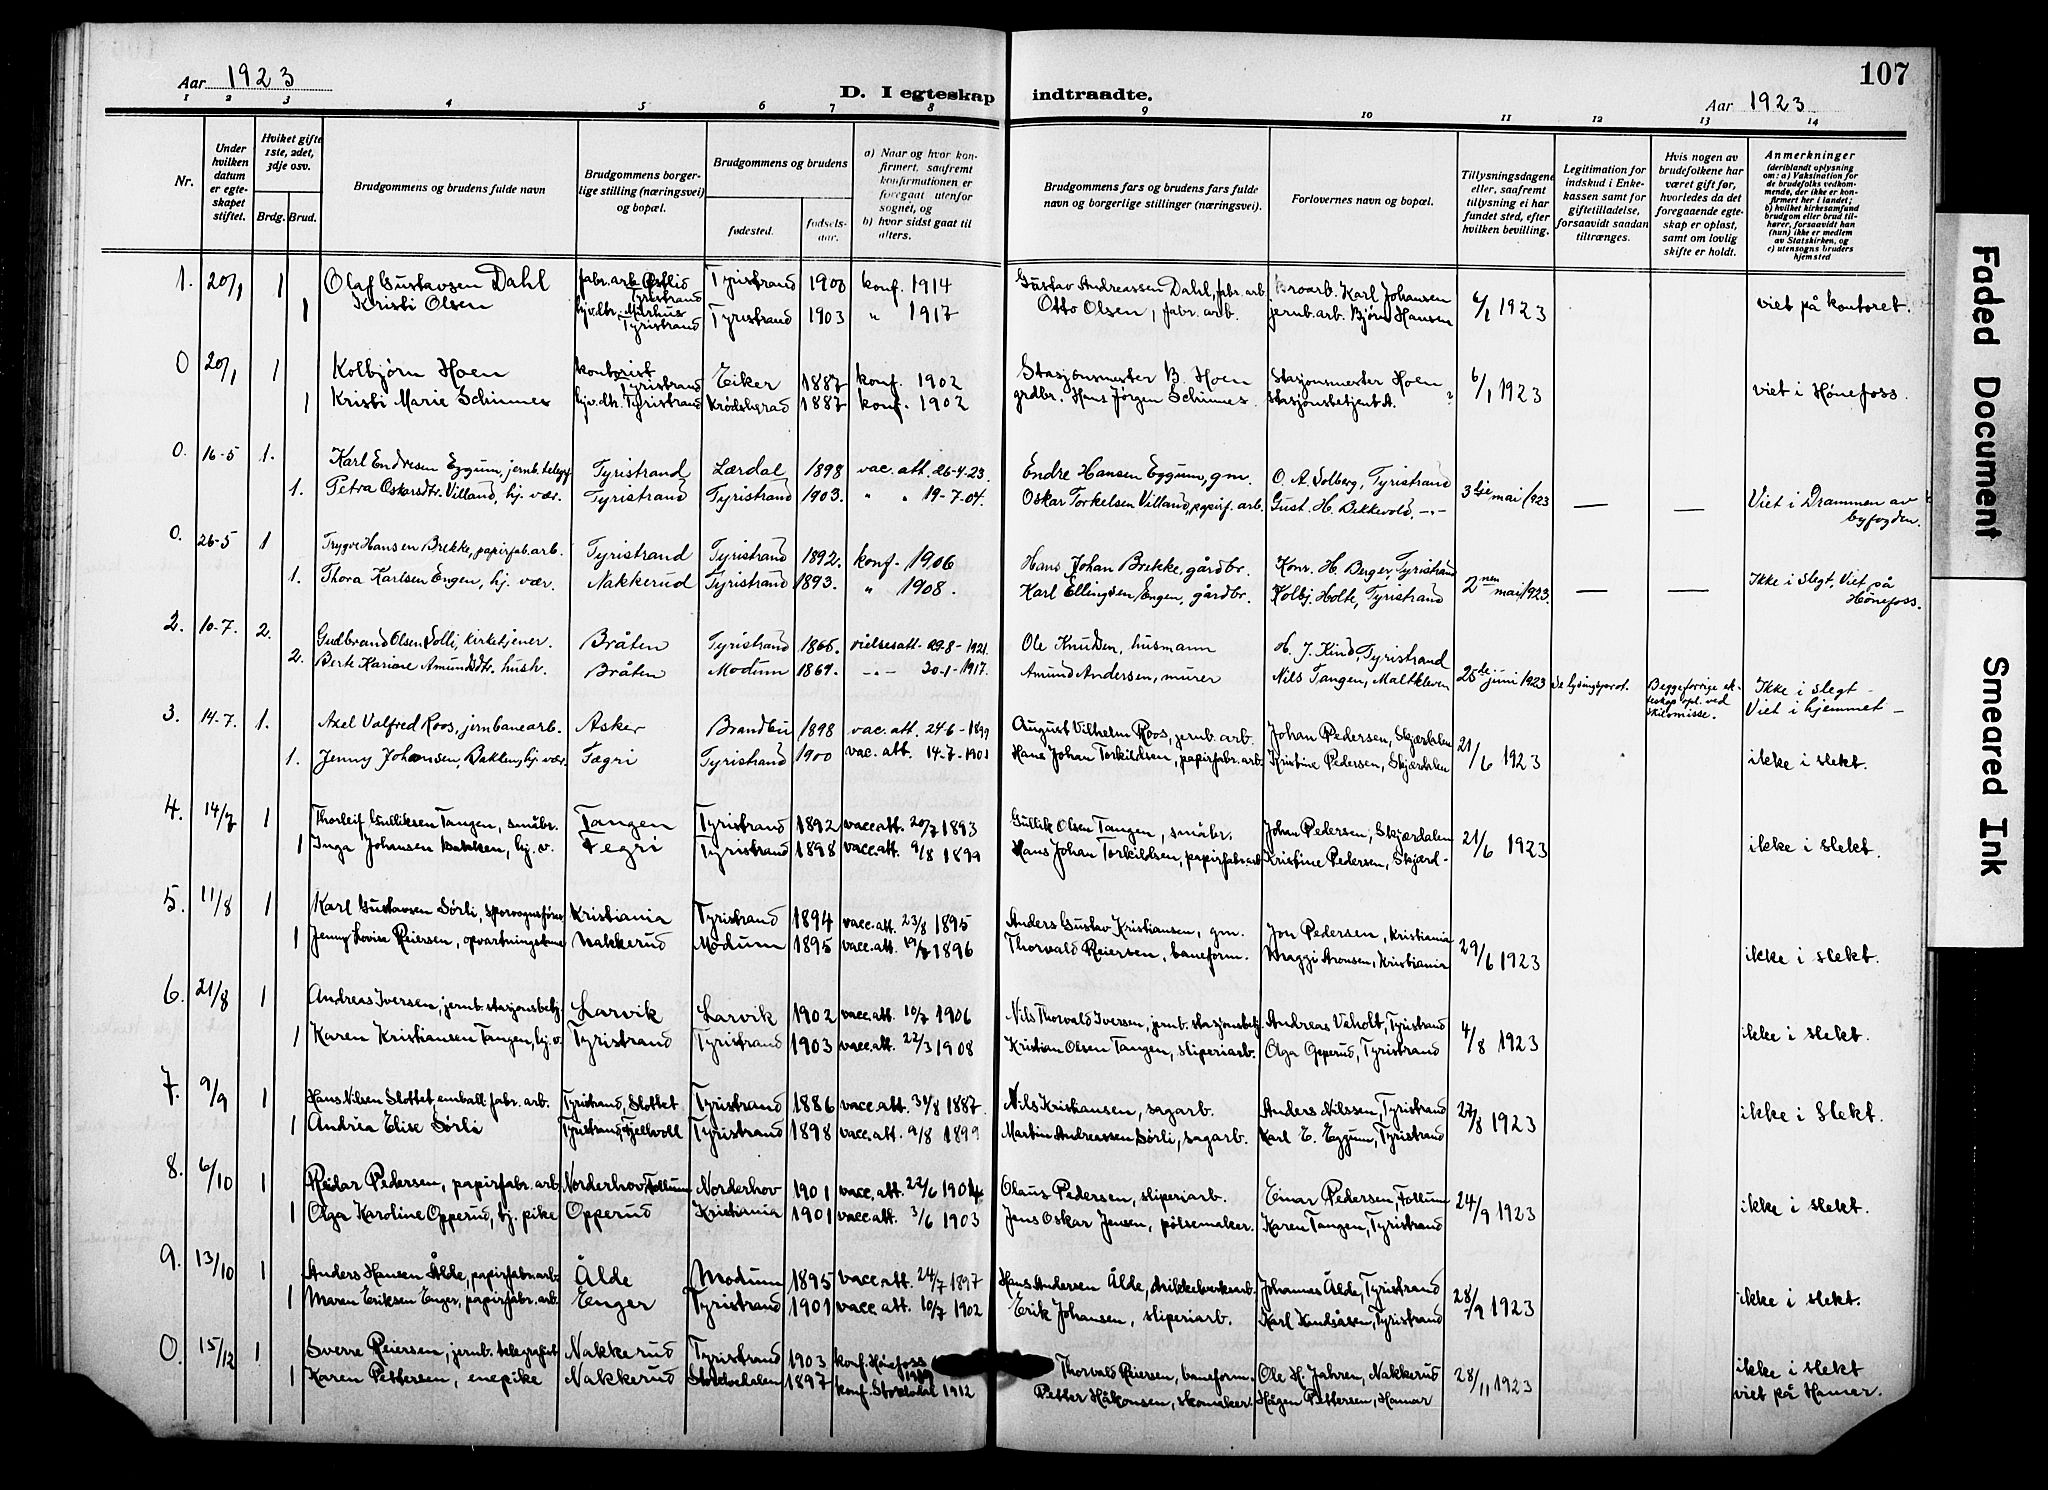 107
Aar 1923
D. I egteskap indtraadte.
Aar 1923
1 2 3 4 5 6 7 8 9 10 11 12 13 14
Nr.
Under hvilken datum er egteskapet stiftet.
Hvilket gifte 1ste, 2det, 3dje osv.
Brdg. Brud.
Brudgommens og brudens fulde navn
Brudgommens borgerlige stilling (næringsvei) og bopæl.
Brudgommens og brudens
fødested.
fødselsaar.
a) Naar og hvor konfirmert, saafremt konfirmationen er foregaat utenfor sognet, og
b) hvor sidst gaat til alters.
Brudgommens fars og brudens fars fulde navn og borgerlige stillinger (næringsvei).
Forlovernes navn og bopæl.
Tillysningsdagene eller, saafremt tillysning ei har fundet sted, efter hvilken bevilling.
Legitimation for indskud i Enkekassen samt for giftetilladelse, forsaavidt saadan tiltrænges.
Hvis nogen av brudefolkene har været gift før, hvorledes da det foregaaende egteskap er opløst, samt om lovlig skifte er holdt.
Anmerkninger
(deriblandt oplysning om: a) Vaksination for de brudefolks vedkommende, der ikke er konfirmert her i landet; b) hvilket kirkesamfund brudgom eller brud tilhører, forsaavidt han (hun) ikke er medlem av Statskirken, og c) utensogns bruders hjemsted
1. 20/1 1 Olaf Gustavsen Dahl fabr. arb. Østlid Tyristrand Tyristrand 1900 konf. 1914 Gustav Andreassen Dahl, fabr. arb. Broarb. Karl Johansen 6/1 1923 viet på kontoret.
1 Kristi Olsen hjv. dtr. Mithus Tyristrand Tyristrand 1903 " 1917 Otto Olsen, fabr. arb. jernb. arb. Bjørn Hansen
0 20/1 1 Kolbjørn Hoen kontorist Tyristrand Eiker 1887 konf. 1902 Stasjonsmester B. Hoen Stasjonsmester Hoen 6/1 1923 viet i Hønefoss.
1 Kristi Marie Schinnes hjv. dtr. Tyristrand Krødsherad 1887 konf. 1902 grdbr. Hans Jörgen Schinnes stasjonsbetjent A. ?
0. 16-5 1. Karl Endresen Eggum, jernb. telegr. Tyristrand Lærdal 1898 vac. att. 26-4-23. Endre Hansen Eggum, gm. O. A. Solberg, Tyristrand 3dje mai 1923 — — Viet i Drammen av byfogden.
1. Petra Oskarsdtr. Villand, hj. vær. Tyristrand Tyristrand 1903. " " 19-7-04. Oskar Torkelsen Villand, papirf. arb. Gust. H. Bikkevold, -"-
0. 26-5 1 Trygve Hansen Brekke, papirfab. arb. Tyristrand Tyristrand 1892. konf. 1906 Hans Johan Brekke, gårdbr. Konr. H. Berger, Tyristrand 2nen mai 1923. — — Ikke i slegt, Viet på Hønefoss.
1. Thora Karlsen Engen, hj. vær. Nakkerud Tyristrand 1893. " 1908. Karl Ellingsen Engen, gårdbr. Kolbj. Holte, Tyristrand
2. 10-7. 2. Gudbrand Olsen Solli, kirketjener. Bråten Tyristrand 1866. vielsesatt. 29-8-1921. Ole Knutsen, husmann H. J. Kind, Tyristrand 25de juni 1923 se lysingsprot. Begge forrige ekteskap opl. ved skilsmisse. Ikke i slegt - Viet i hjemmet -
2. Berte Kariane Amundsdtr. hush. Bråten Modum 1869. -"- 30-1-1917. Amund Andersen, murer Nils Tangen, Maltkleven
3. 14-7. 1. Axel Valfred Roos, jernbanearb. Asker Brandbu 1898 vac. att. 24-6-1899 August Vilhelm Roos, jernb. arb. Johan Pedersen, Skjærdalen 21/6 1923 ikke i slekt.
1. Jenny Johansen, Bakken, hj. vær. Fægri Tyristrand 1900 vac. att. 14-7-1901 Hans Johan Torkildsen, papirfabr. arb. Kristine Pedersen, Skjærdalen
4. 14/7 1 Thorleif Gulliksen Tangen, småbr. Tangen Tyristrand 1892 vacc. att. 20/7 1893 Gullik Olsen Tangen, småbr. Johan Pedersen, Skjærdalen 21/6 1923 ikke i slekt.
1 Inga Johansen Bakken, hj. v. Fegri Tyristrand 1898 vacc. att. 9/8 1899 Hans Johan Torkildsen, papirfabr. arb. Kristine Pedersen, Skjærd-
5. 11/8 1 Karl Gustavsen Sørli, sporvognsfører Kristiania Tyristrand 1894 vacc. att. 23/8 1895 Anders Gustav Kristiansen, gm. Jon Pedersen, Kristiania 29/6 1923 ikke i slekt.
1 Jenny Lovise Reiersen, opvartningsdame Nakkerud Modum 1895 vacc. att. 19/7 1896 Thorvald Reiersen, baneform. Kraggi Aronsen, Kristiania
6. 21/8 1 Andreas Iversen, jernb. stasjonsbetj. Larvik Larvik 1902 vacc. att. 10/7 1906 Nils Thorvald Iversen, jernb. stasjonsbetj. Andreas Viholt, Tyristrand 4/8 1923 ikke i slekt.
1 Karen Kristiansen Tangen, hj. v. Tyristrand Tyristrand 1903 vacc. att. 22/3 1908 Kristian Olsen Tangen, sliperiarb. Olga Opperud, Tyristrand
7. 9/9 1 Hans Nilsen Slottet, emball. fabr. arb. Tyristrand, Slottet Tyristrand 1886 vacc. att. 31/8 1887. Nils Kristiansen, sagarb. Anders Nilssen, Tyristrand 27/8 1923 ikke i slekt.
1 Andrea Elise Sørli Tyristrand, Fjellvoll Tyristrand 1898 vacc. att. 9/8 1899 Martin Andreassen Sørli, sagarb. Karl E. Eggum, Tyristrand
8. 6/10 1 Reidar Pedersen, papirfabr. arb. Norderhov, Follum Norderhov 1901 vacc. att. 22/6 1904 Olaus Pedersen, sliperiarb. Einar Pedersen, Follum 24/9 1923 ikke i slekt.
1 Olga Karoline Opperud, hj. pike Opperud Kristiania 1901 vacc. att. 3/6 1903 Jens Oskar Jensen, pølsemaker. Karen Tangen, Tyristrand
9. 13/10 1 Anders Hansen Ålde, papirfabr. arb. Ålde Modum 1895 vacc. att. 24/7 1897 Hans Andersen Ålde, Johannes Ålde, Tyristrand 28/9 1923 ikke i slekt.
1 Maren Eriksen Enger, papirfabr. arb. Enger Tyristrand 1901 vacc. att. 10/7 1902 Erik Johansen, sliperiarb. Karl Knudsåsen, Tyristrand
0. 15/12 1 Sverre Reiersen, jernb. telegrafist Nakkerud Tyristrand 1903 konf. Hønefoss Thorvald Reiersen, baneform. Ole H. Jahren, Nakkerud 28/11 1923 ikke i slekt viet på Hamar.
1 Karen Pettersen, enepike Nakkerud Storelvedalen 1897 konf. Storeldal 1912 Petter Håkonsen, skomaker. Hågen Pettersen, Hamar
Faded Document
Smeared Ink